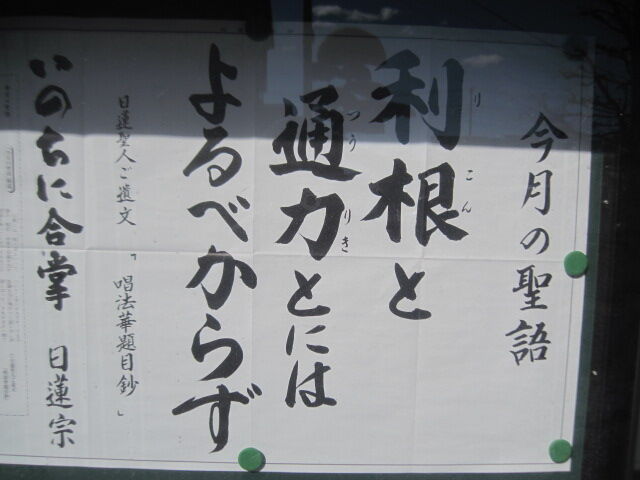 今月の聖語
利根と
りこん
通力とには
つうりき
よるべからず
日蓮聖人ご遺文「唱法華題目鈔」
いのちに合掌 日蓮宗